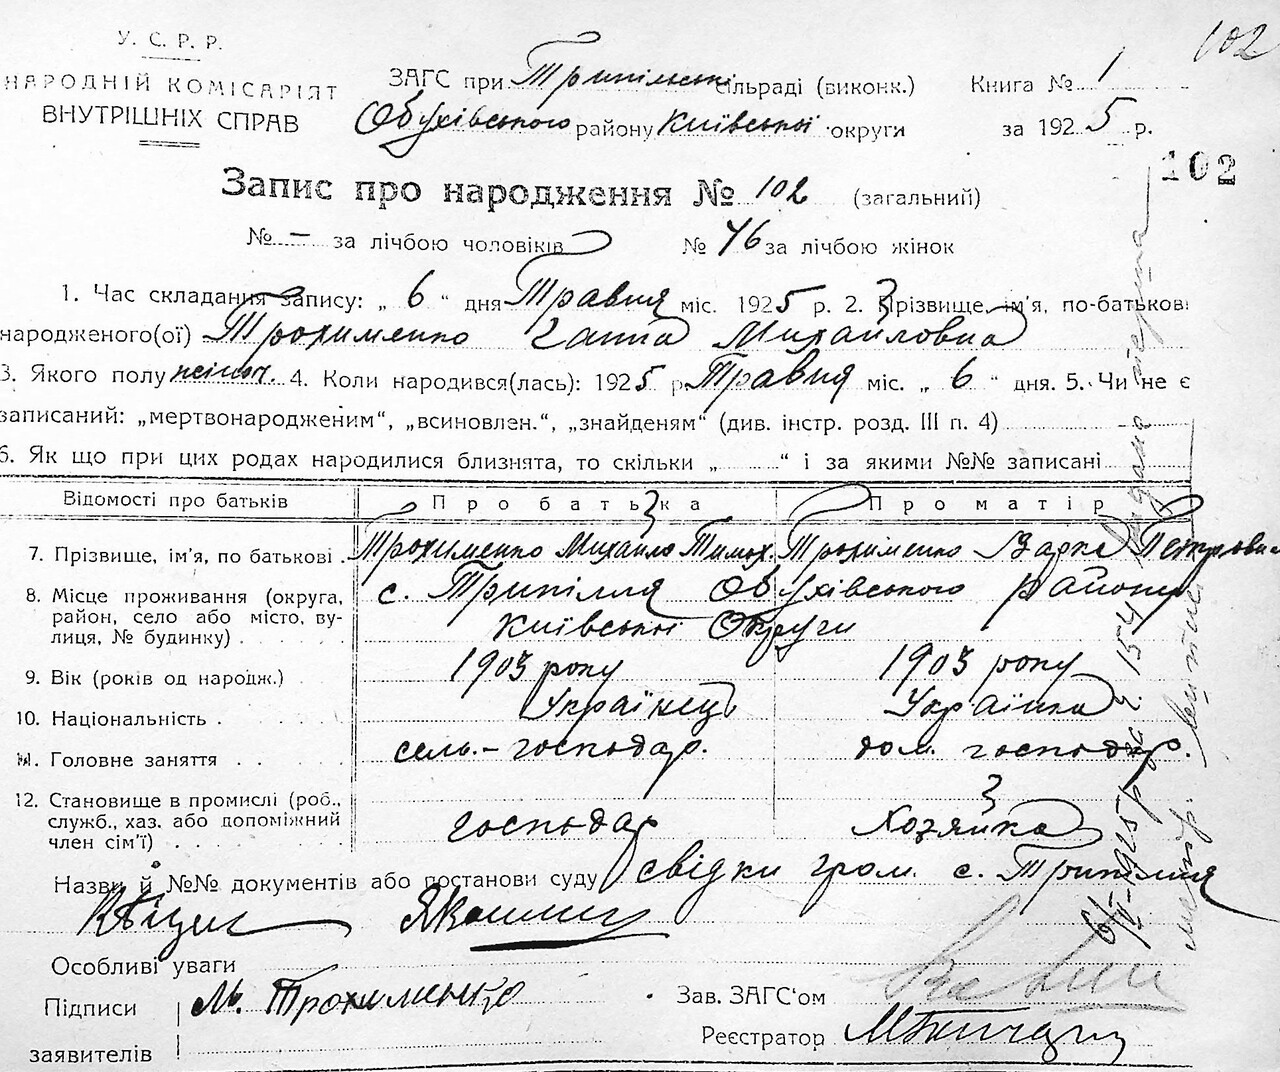 102
У. С. Р. Р.
НАРОДНІЙ КОМІСАРІЯТ
ВНУТРІШНІХ СПРАВ
ЗАГС при Трипільскі сільраді (виконк.) Книга № 1
Обухівського району Київської округи за 1925 р.
102
Запис про народження № 102 (загальний)
№ – за лічбою чоловіків № 46 за лічбою жінок
1. Час складання запису: „ 6 “ дня Травня міс. 1925 р. 2. Прізвище, ім’я, по-батькові
народженого(ої) Трохименко Ганна Михайловна
3. Якого полу жіноч. 4. Коли народився(лась): 1925 р. Травня міс. „ 6 “ дня. 5. Чи не є
записаний: „мертвонародженим“, „всиновлен.“, „знайденям“ (див. інстр. розд. III п. 4)
6. Як що при цих родах народилися близнята, то скільки „ “ і за якими №№ записані
Відомості про батьків Про батька Про матір
7. Прізвище, ім’я, по батькові . Трохименко Михайло Тимох. Трохименко Варка Петровна
8. Місце проживання (округа, район, село або місто, вулиця, № будинку) с. Трипілля Обухівського району
Київської Округи
9. Вік (років од народж.) 1903 року 1903 року
10. Національність Українець Українка
11. Головне заняття сель.-господар. дом. господар.
12. Становище в промислі (роб., служб., хаз. або допоміжний член сім’ї) господар Хозяйка
Назви й №№ документів або постанови суду свідки гром. с. Трипілля
Особливі уваги
Підписи М. Трохименко Зав. ЗАГС‘ом
заявителів Реєстратор
6/V-1925 р. за № 154 видано
метр.